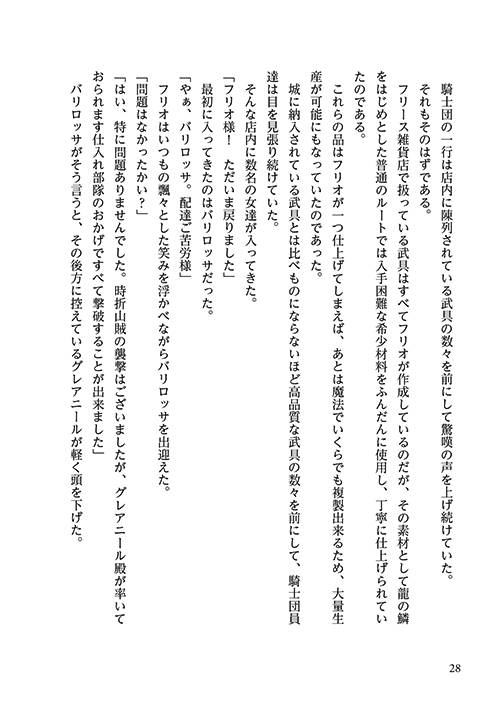 騎士団の一行は店内に陳列されている武具の数々を前にして驚嘆の声を上げ続けていた。
それもそのはずである。
フリース雑貨店で扱っている武具はすべてフリオが作成しているのだが、その素材として龍の鱗
をはじめとした普通のルートでは入手困難な希少材料をふんだんに使用し、丁寧に仕上げられてい
たのである。
これらの品はフリオが一つ仕上げてしまえば、あとは魔法でいくらでも複製出来るため、大量生
産が可能にもなっていたのであった。
城に納入されている武具とは比べものにならないほど高品質な武具の数々を前にして、騎士団員
達は目を見張り続けていた。
そんな店内に数名の女達が入ってきた。
「フリオ様！　ただいま戻りました」
最初に入ってきたのはバリロッサだった。
「やぁ、バリロッサ。配達ご苦労様」
フリオはいつもの飄々とした笑みを浮かべながらバリロッサを出迎えた。
「問題はなかったかい？」
「はい、特に問題ありませんでした。時折山賊の襲撃はございましたが、グレアニール殿が率いて
おられます仕入れ部隊のおかげですべて撃破することが出来ました」
バリロッサがそう言うと、その後方に控えているグレアニールが軽く頭を下げた。
28